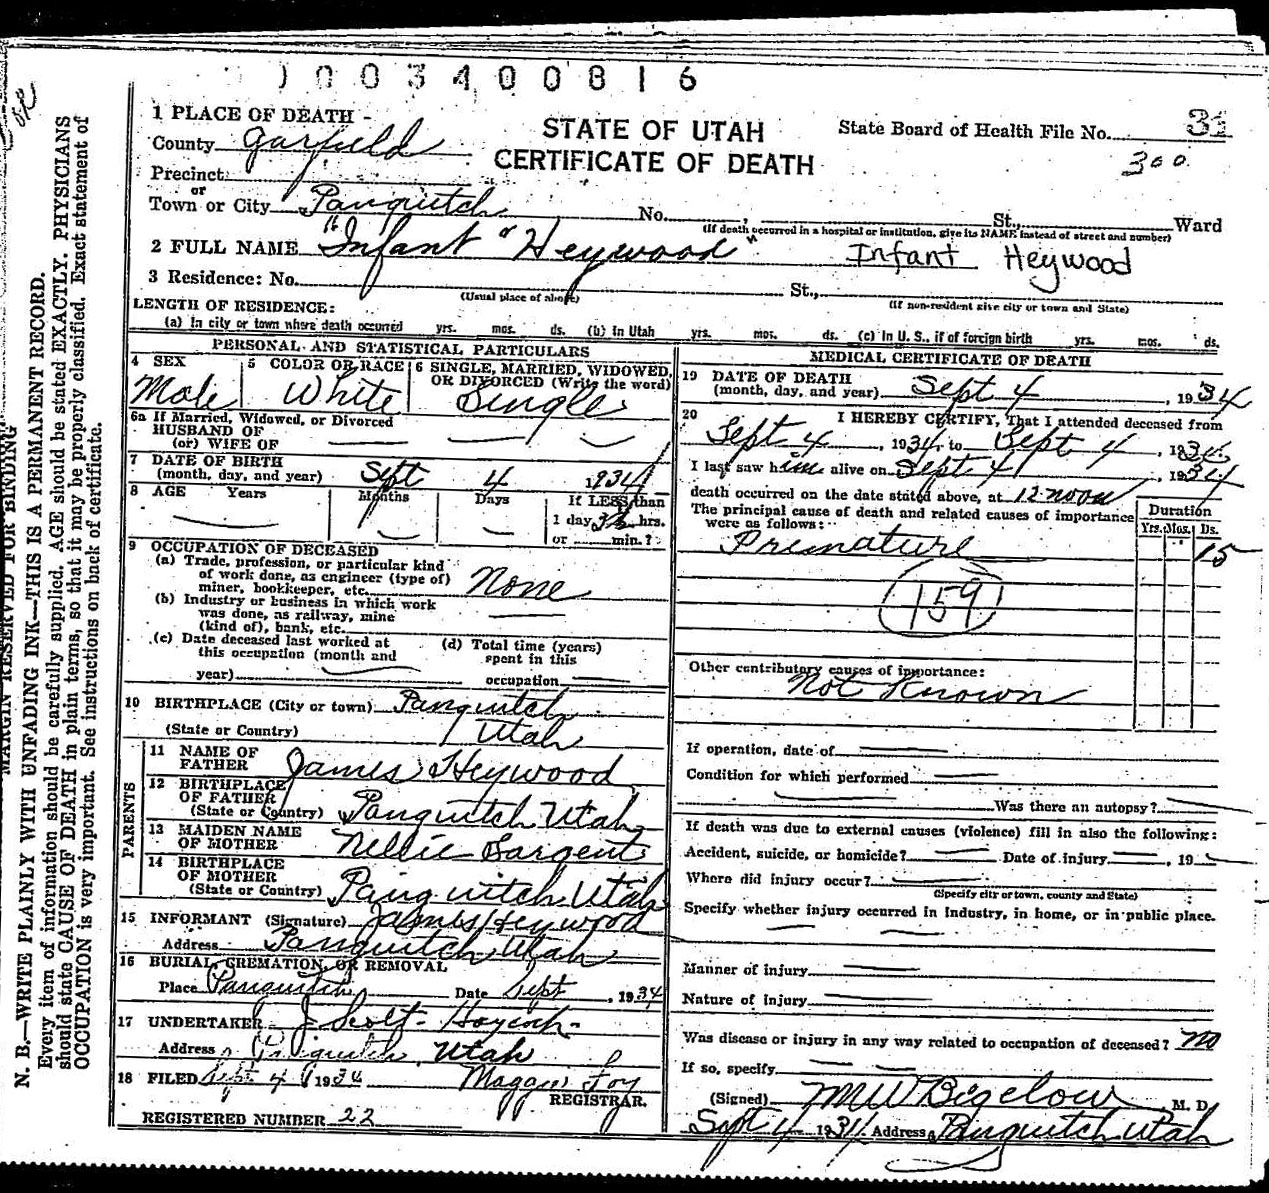 1003400816
1 PLACE OF DEATH -
STATE OF UTAH
CERTIFICATE OF DEATH
State Board of Health File No.
300
County Garfield
Precinct
or
Town or City Panguitch No. , St., Ward
(If death occurred in a hospital or institution, give its NAME instead of street and number)
2 FULL NAME "Infant" Heywood Infant Heywood
3 Residence: No. St.,
(Usual place of abode) (If non-resident give city or town and State)
LENGTH OF RESIDENCE:
(a) In city or town where death occurred yrs. mos. ds. (b) In Utah yrs. mos. ds. (c) In U. S., if of foreign birth yrs. mos. ds.
PERSONAL AND STATISTICAL PARTICULARS
4 SEX 5 COLOR OR RACE 6 SINGLE, MARRIED, WIDOWED, OR DIVORCED (Write the word)
Male White Single
6a If Married, Widowed, or Divorced
HUSBAND OF
(or) WIFE OF
7 DATE OF BIRTH
(month, day, and year) Sept 4 1934
8 AGE Years Months Days If LESS than
1 day hrs.
or min.?
9 OCCUPATION OF DECEASED
(a) Trade, profession, or particular kind
of work done, as engineer (type of)
miner, bookkeeper, etc. None
(b) Industry or business in which work
was done, as railway, mine
(kind of), bank, etc.
(c) Date deceased last worked at
this occupation (month and
year)
(d) Total time (years)
spent in this
occupation
10 BIRTHPLACE (City or town) Panguitch
(State or Country) Utah
PARENTS
11 NAME OF
FATHER James Heywood
12 BIRTHPLACE
OF FATHER
(State or Country) Panguitch Utah
13 MAIDEN NAME
OF MOTHER Nellie Sargent
14 BIRTHPLACE
OF MOTHER
(State or Country) Panguitch Utah
15 INFORMANT (Signature) James Heywood
Address Panguitch Utah
16 BURIAL, CREMATION, OR REMOVAL
Place Panguitch Date Sept , 1934
17 UNDERTAKER J Scott
Address Panguitch Utah
18 FILED Sept 4 1934 Maggie Foy
REGISTRAR.
REGISTERED NUMBER 22
MEDICAL CERTIFICATE OF DEATH
19 DATE OF DEATH
(month, day, and year) Sept 4 , 1934
20 I HEREBY CERTIFY, That I attended deceased from
Sept 4 , 1934, to Sept 4 , 1934
I last saw him alive on Sept 4 , 1934
death occurred on the date stated above, at 12 noon
The principal cause of death and related causes of importance
were as follows:
Duration
Yrs. Mos. Ds.
Premature 15
159
Other contributory causes of importance:
Not Known
If operation, date of
Condition for which performed
Was there an autopsy?
If death was due to external causes (violence) fill in also the following:
Accident, suicide, or homicide? Date of injury , 19
Where did injury occur?
(Specify city or town, county and State)
Specify whether injury occurred in industry, in home, or in public place.
Manner of injury
Nature of injury
Was disease or injury in any way related to occupation of deceased? No
If so, specify
(Signed) M W Bigelow M. D.
Sept 4 1934 Address Panguitch Utah
MARGIN RESERVED FOR BINDING
N. B.—WRITE PLAINLY WITH UNFADING INK—THIS IS A PERMANENT RECORD.
Every item of information should be carefully supplied. AGE should be stated EXACTLY. PHYSICIANS
should state CAUSE OF DEATH in plain terms, so that it may be properly classified. Exact statement of
OCCUPATION is very important. See instructions on back of certificate.